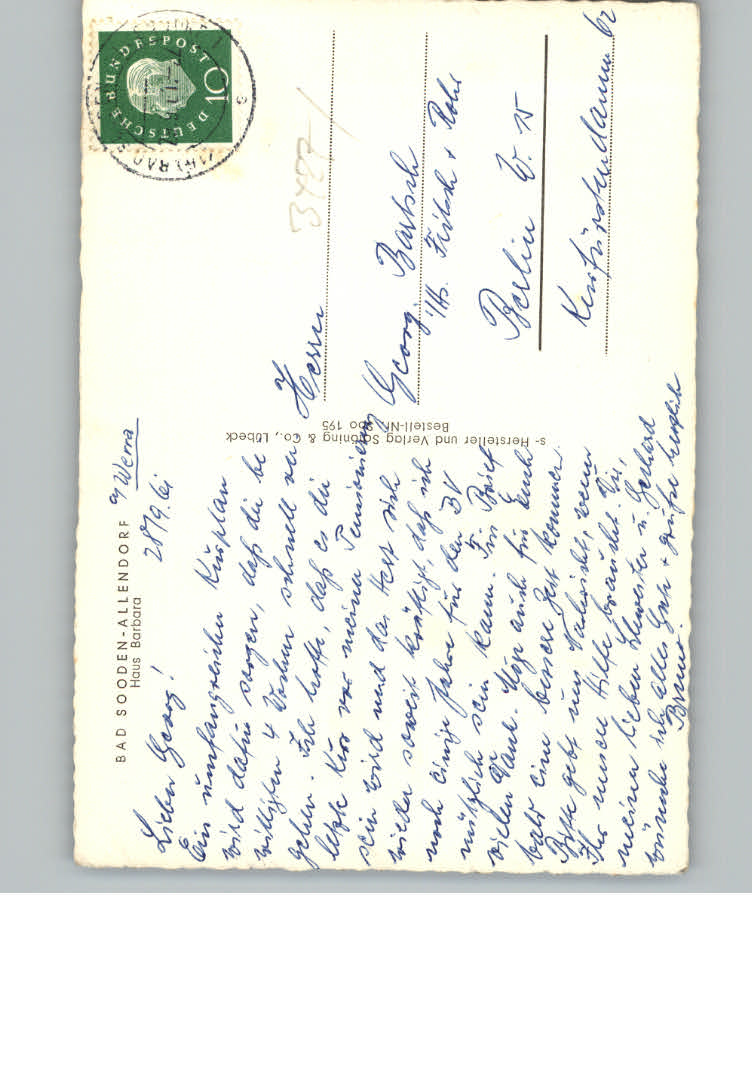 BAD SOODEN-ALLENDORF a/ Werra
Haus Barbara
28/9.61
Lieber Georg!
Ein umfangreicher Kurplan
wird dafür sorgen, daß die be
willigten 4 Wochen schnell ver
gehen. Ich hoffe, daß es die
letzte Kur vor meiner Pensionierung
sein wird und das Herz sich
wieder soweit kräftigt, daß ich
noch einige Jahre für den
nützlich sein kann. Brief
vielen Dank. Möge auch für Euch
bald eine bessere Zeit kommen.
Bitte gebt uns Nachricht, wenn
Ihr unsere Hilfe braucht. Dir,
meiner lieben Schwester u. Gerhard
wünsche ich alles Gute + grüße herzlich
Bruno.
s- Hersteller und Verlag Schöning & Co., Lübeck
Bestell-Nr. 195
DEUTSCHE BUNDESPOST
10
3427/
Herrn
Georg Bartsch
i/Hs. Fritsch + Rohr
Berlin W. 15
Kurfürstendamm 62